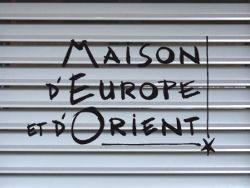 MAISON
D'EUROPE
ET D'ORIENT